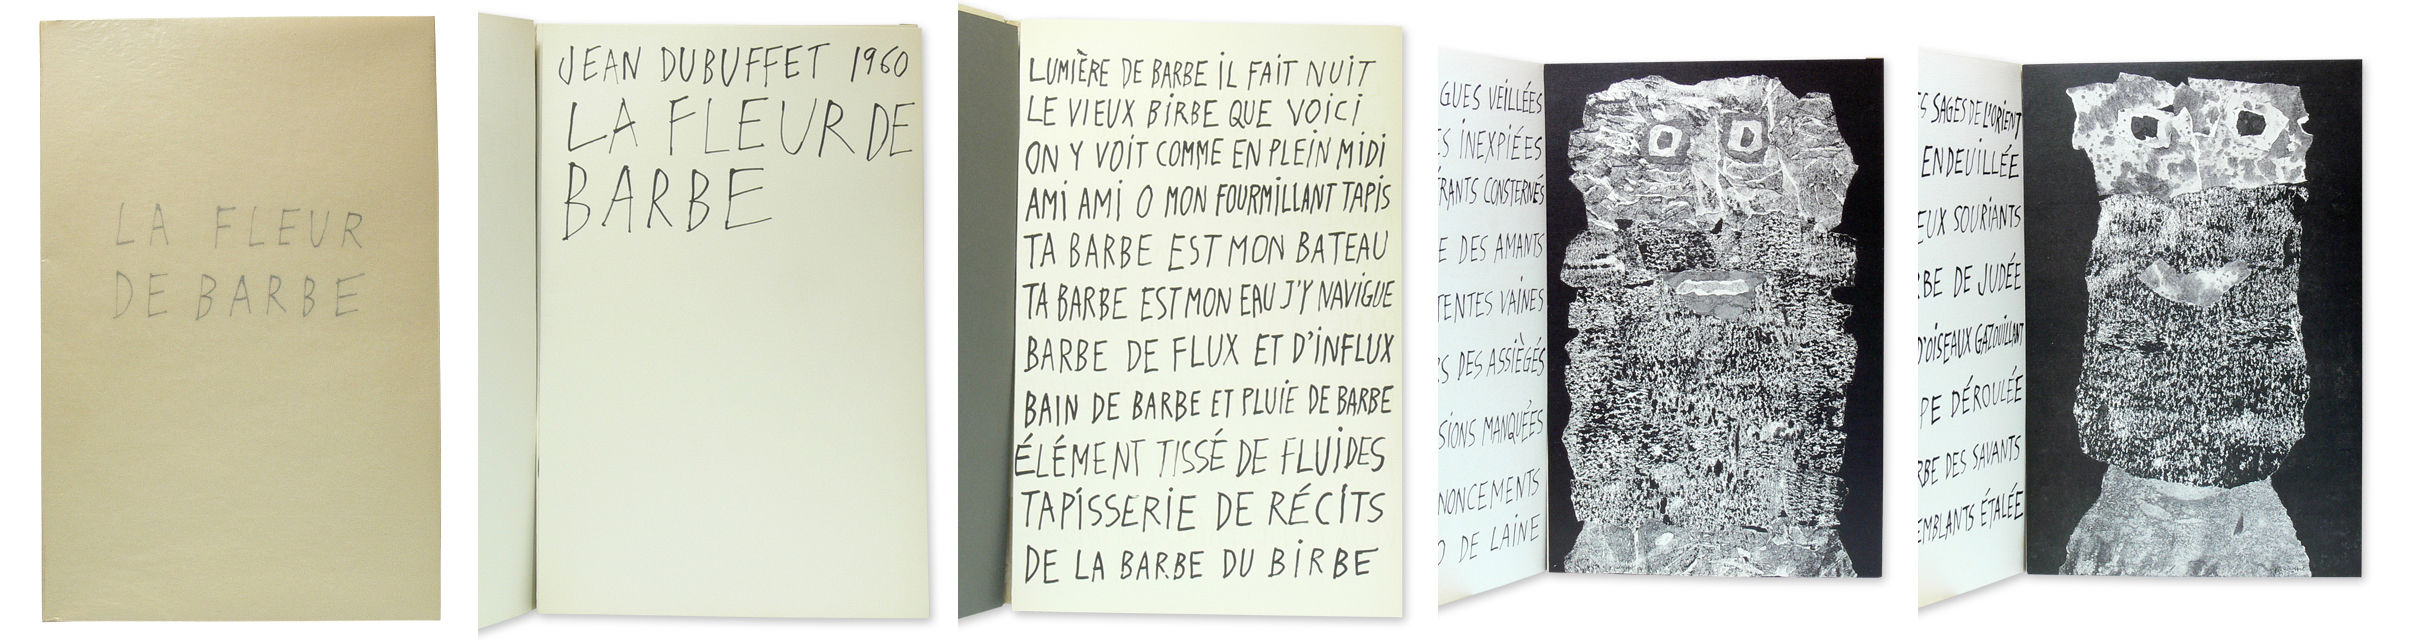 LA FLEUR
DE BARBE
JEAN DUBUFFET 1960
LA FLEUR DE
BARBE
LUMIÈRE DE BARBE IL FAIT NUIT
LE VIEUX BIRBE QUE VOICI
ON Y VOIT COMME EN PLEIN MIDI
AMI AMI O MON FOURMILLANT TAPIS
TA BARBE EST MON BATEAU
TA BARBE EST MON EAU J'Y NAVIGUE
BARBE DE FLUX ET D'INFLUX
BAIN DE BARBE ET PLUIE DE BARBE
ÉLÉMENT TISSÉ DE FLUIDES
TAPISSERIE DE RÉCITS
DE LA BARBE DU BIRBE
GUES VEILLÉES
ES INEXPIÉES
RANTS CONSTERNÉS
E DES AMANTS
TENTES VAINES
RS DES ASSIÉGÉS
SIONS MANQUÉES
NONCEMENTS
DE LAINE
ES SAGES DE L'ORIENT
ENDEUILLÉE
EUX SOURIANTS
RBE DE JUDÉE
D'OISEAUX GAZOUILLANT
PE DÉROULÉE
RBE DES SAVANTS
EMBLANTS ÉTALÉE